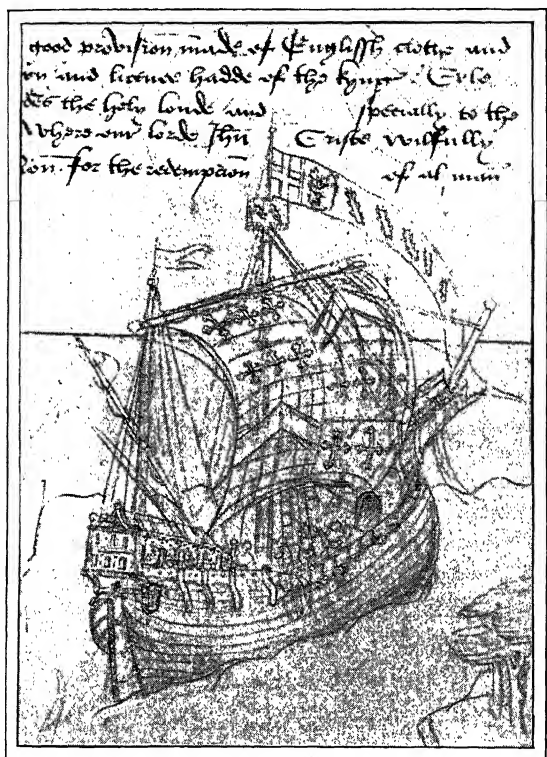 good provision made of Englissh clothe and
and licence hadde of the kynge Erle
the holy londe and specially to the
Where our lorde Jhu Criste wilfully
for the redempcion of al man